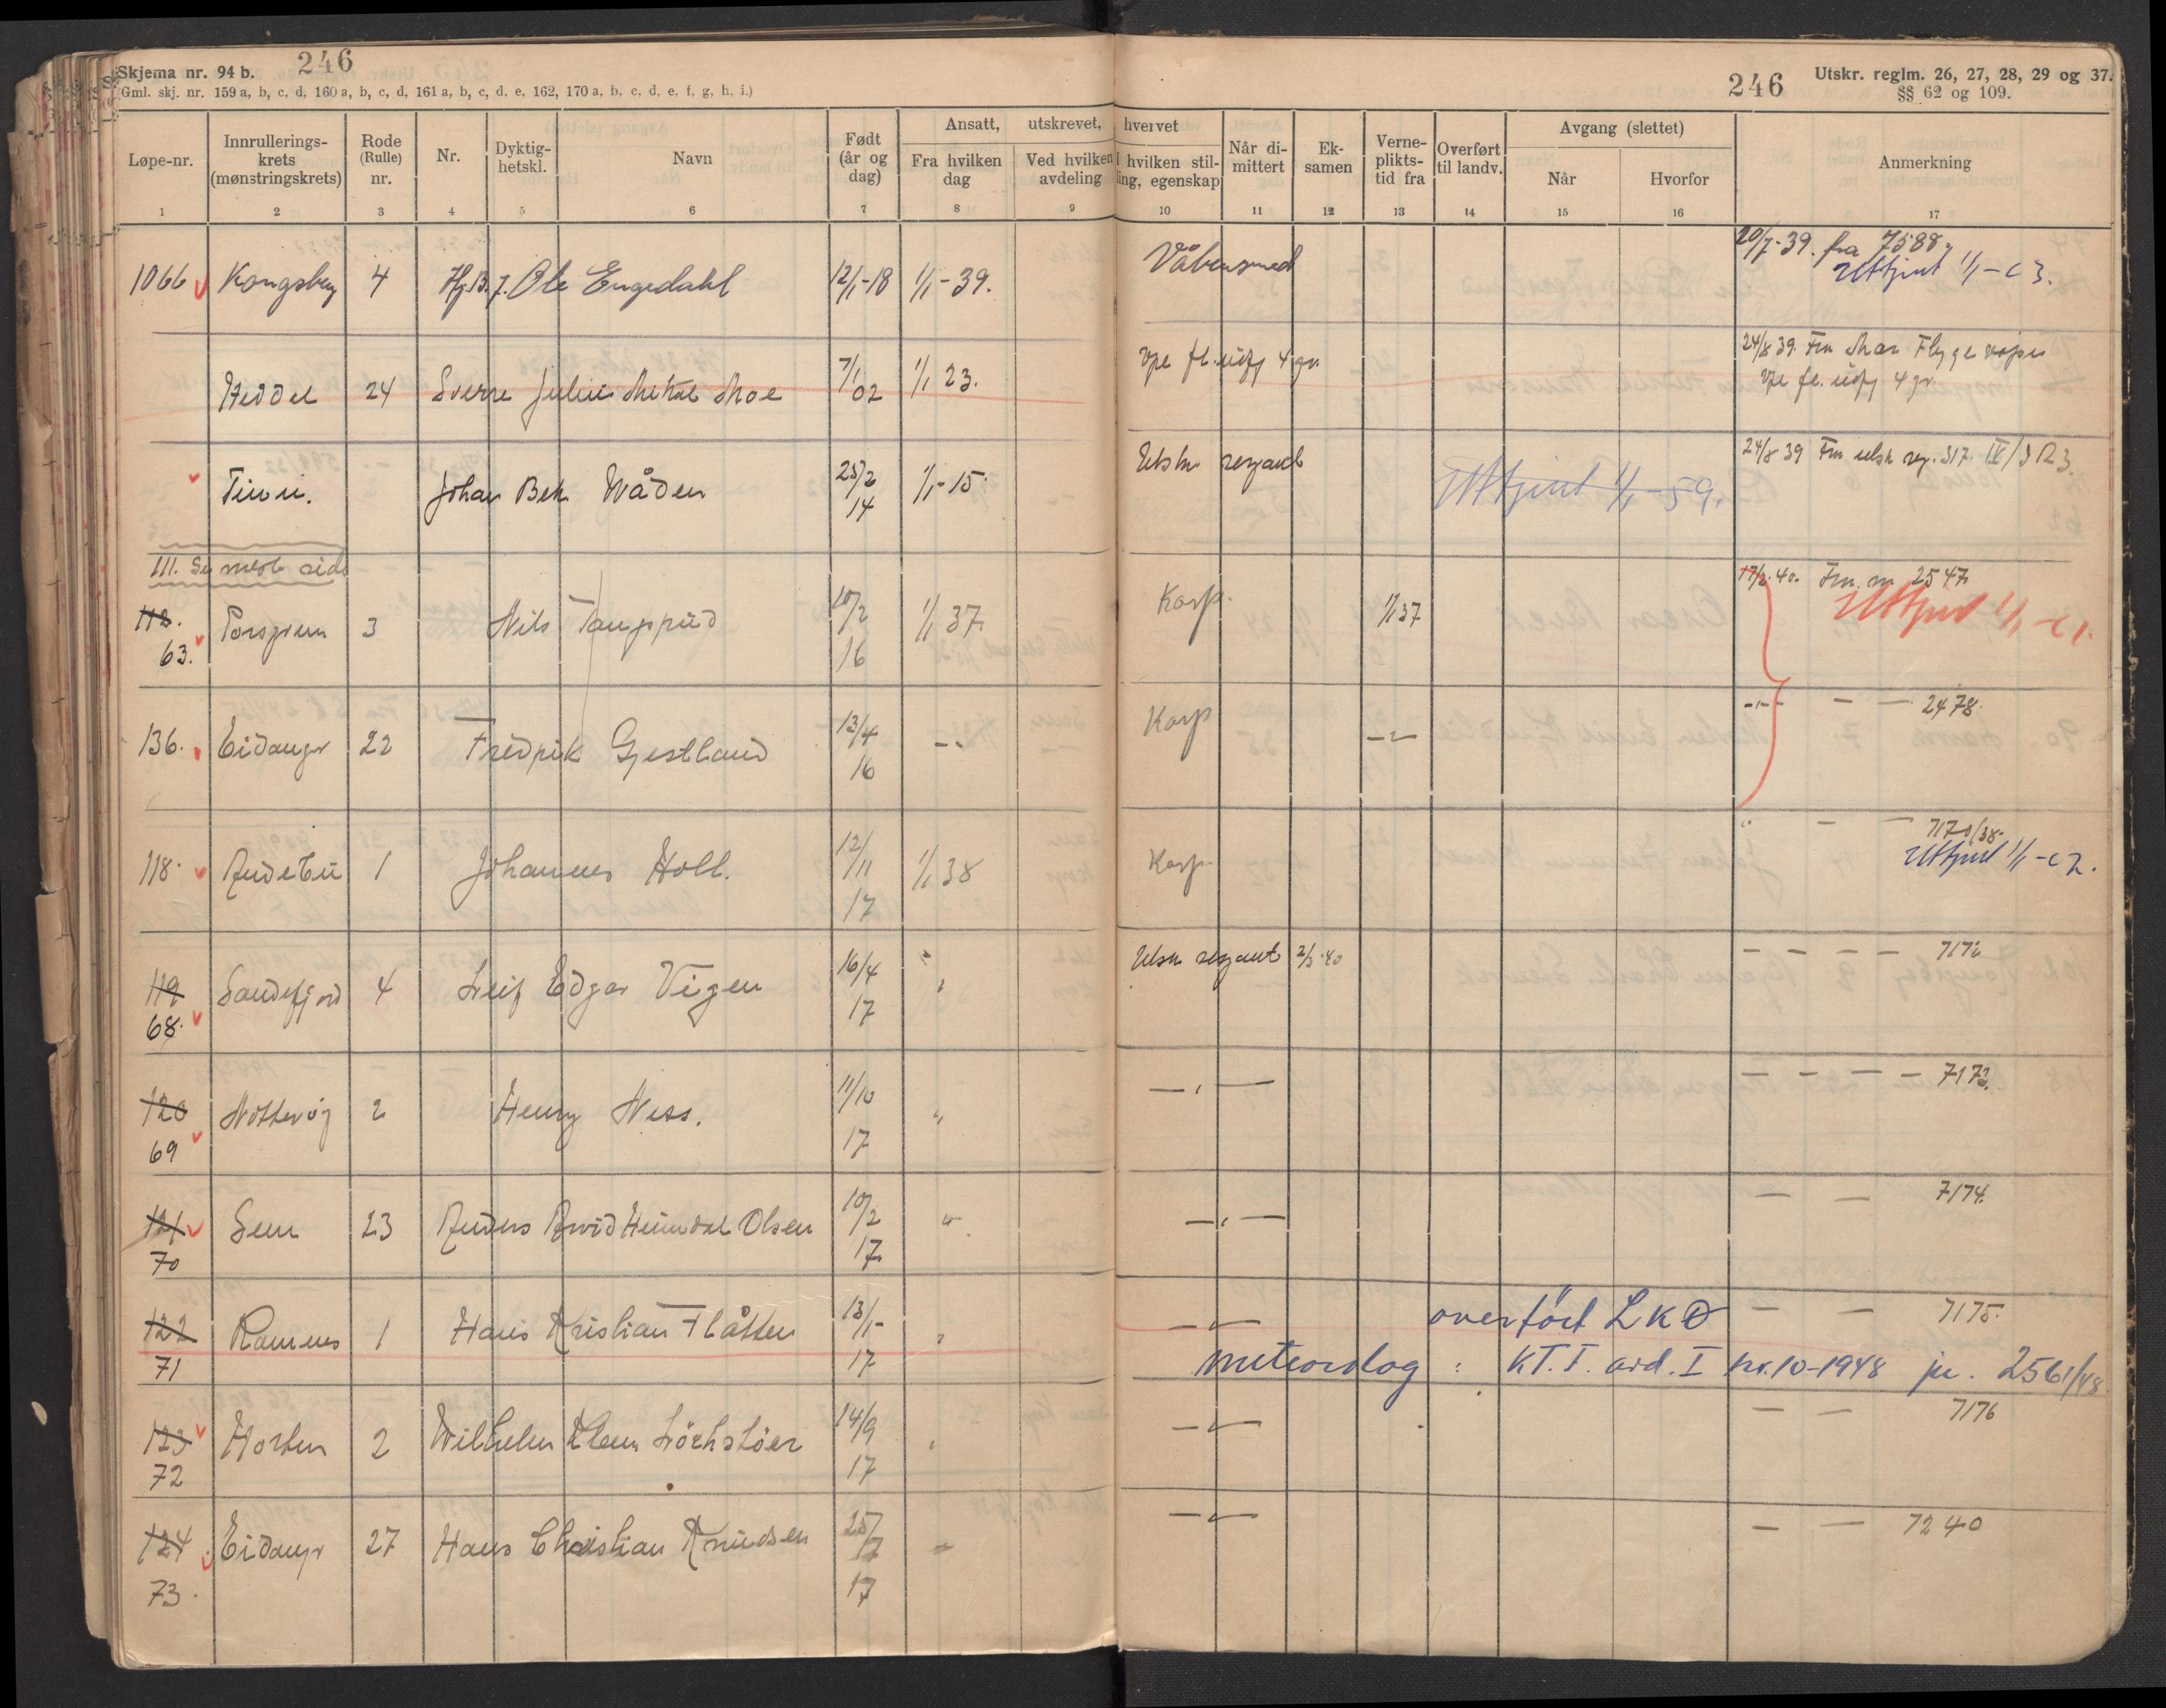 246
Skjema nr. 94 b.
(Gml. skj. nr. 159 a, b, c, d, 160 a, b, c, d, 161 a, b, c, d, e, 162, 170 a, b, c, d, e, f, g, h, i.)
246
Utskr. reglm. 26, 27, 28, 29 og 37.
§§ 62 og 109.
Løpe-nr. Innrullerings-krets (mønstringskrets) Rode (Rulle) nr. Nr. Dyktig-hetskl. Navn Født (år og dag) Ansatt, utskrevet, hvervet
Fra hvilken dag Ved hvilken avdeling I hvilken stil-ling, egenskap Når di-mittert Ek-samen Verne-plikts-tid fra Overført til landv. Avgang (slettet) Når Hvorfor Anmerkning
1 2 3 4 5 6 7 8 9 10 11 12 13 14 15 16 17
1066 Kongsberg 4 Hj.B.7. Ole Engedahl 12/1-18 1/1-39. Våbensmed 20/7-39. fra 7588.
Uttjent 1/1-63.
Heddal 24 Sverre Julius Moe 7/1 02 1/1 23. vpl fl. 4 gr. 24/8 39. Fra Mar Flyge
vpl fl. 4 gr.
Tinn. Johan Bek Wåden 25/2 14 1/1-15. Utskr sersjant Uttjent 1/1-59. 24/8 39 Fra utsk ser. 317 IV/IR3.
III. Se neste side
112.
63. Porsgrunn 3 Nils Tangerud 10/2 16 1/1 37. Korp. 1/1 37 17/2-40. Fra nr 2547.
Uttjent 1/1-61.
136. Eidanger 22 Fredrik Gjestland 13/4 16 -"- Korp -"- -"- — — 2478.
118. Andebu 1 Johannes Holt. 12/11 17 1/1 38 Korp. " — — 7170/38.
Uttjent 1/1-62.
119
68. Sandefjord 4 Leif Edgar Vigen 16/4 17 " Utskr sersjant 2/3-40 — — — — 7172
120
69 Nøtterøy 2 Henry Ness. 11/10 17 " —"— — — — — 7173.
121
70 Sem 23 Anders Arvid Heimdal Olsen 10/2 17 " —"— — — 7174.
122
71 Ramnes 1 Hans Kristian Flåtten 13/1 17 " —"— overført LKØ — — 7175.
meteorolog : KT.I. avd. I nr. 10-1948 jr. 2561/48
123
72 Horten 2 Wilhelm 14/9 17 " —"— — — 7176
124
73. Eidanger 27 Hans Christian Knudsen 25/7 17 " —"— — — 7240